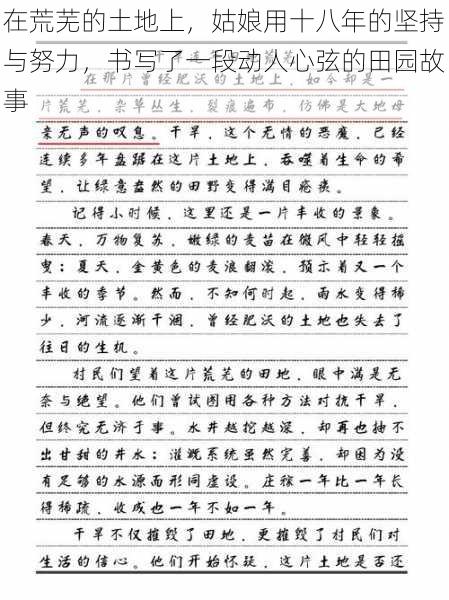 在荒芜的土地上，姑娘用十八年的坚持
与努力，书写了一段动人心弦的田园故
事
在那片曾经肥沃的土地上，如今却是一
片荒芜，杂草丛生，裂痕遍布，仿佛是大地母
亲无声的叹息。干旱，这个无情的恶魔，已经
连续多年盘踞在这片土地上，吞噬着生命的希
望，让绿意盎然的田野变得满目疮痍。
记得小时候，这里还是一片丰收的景象。
春天，万物复苏，嫩绿的麦苗在微风中轻轻摇
曳；夏天，金黄色的麦浪翻滚，预示着又一个
丰收的季节。然而，不知何时起，雨水变得稀
少，河流逐渐干涸，曾经肥沃的土地也失去了
往日的生机。
村民们望着这片荒芜的田地，眼中满是无
奈与绝望。他们曾试图用各种方法对抗干旱，
但终究无济于事。水井越挖越深，却再也抽不
出甘甜的井水；灌溉系统虽然完善，却因为没
有足够的水源而形同虚设。庄稼一年比一年长
得稀疏，收成也一年不如一年。
干旱不仅摧毁了田地，更摧毁了村民们对
生活的信心。他们开始怀疑，这片土地是否还